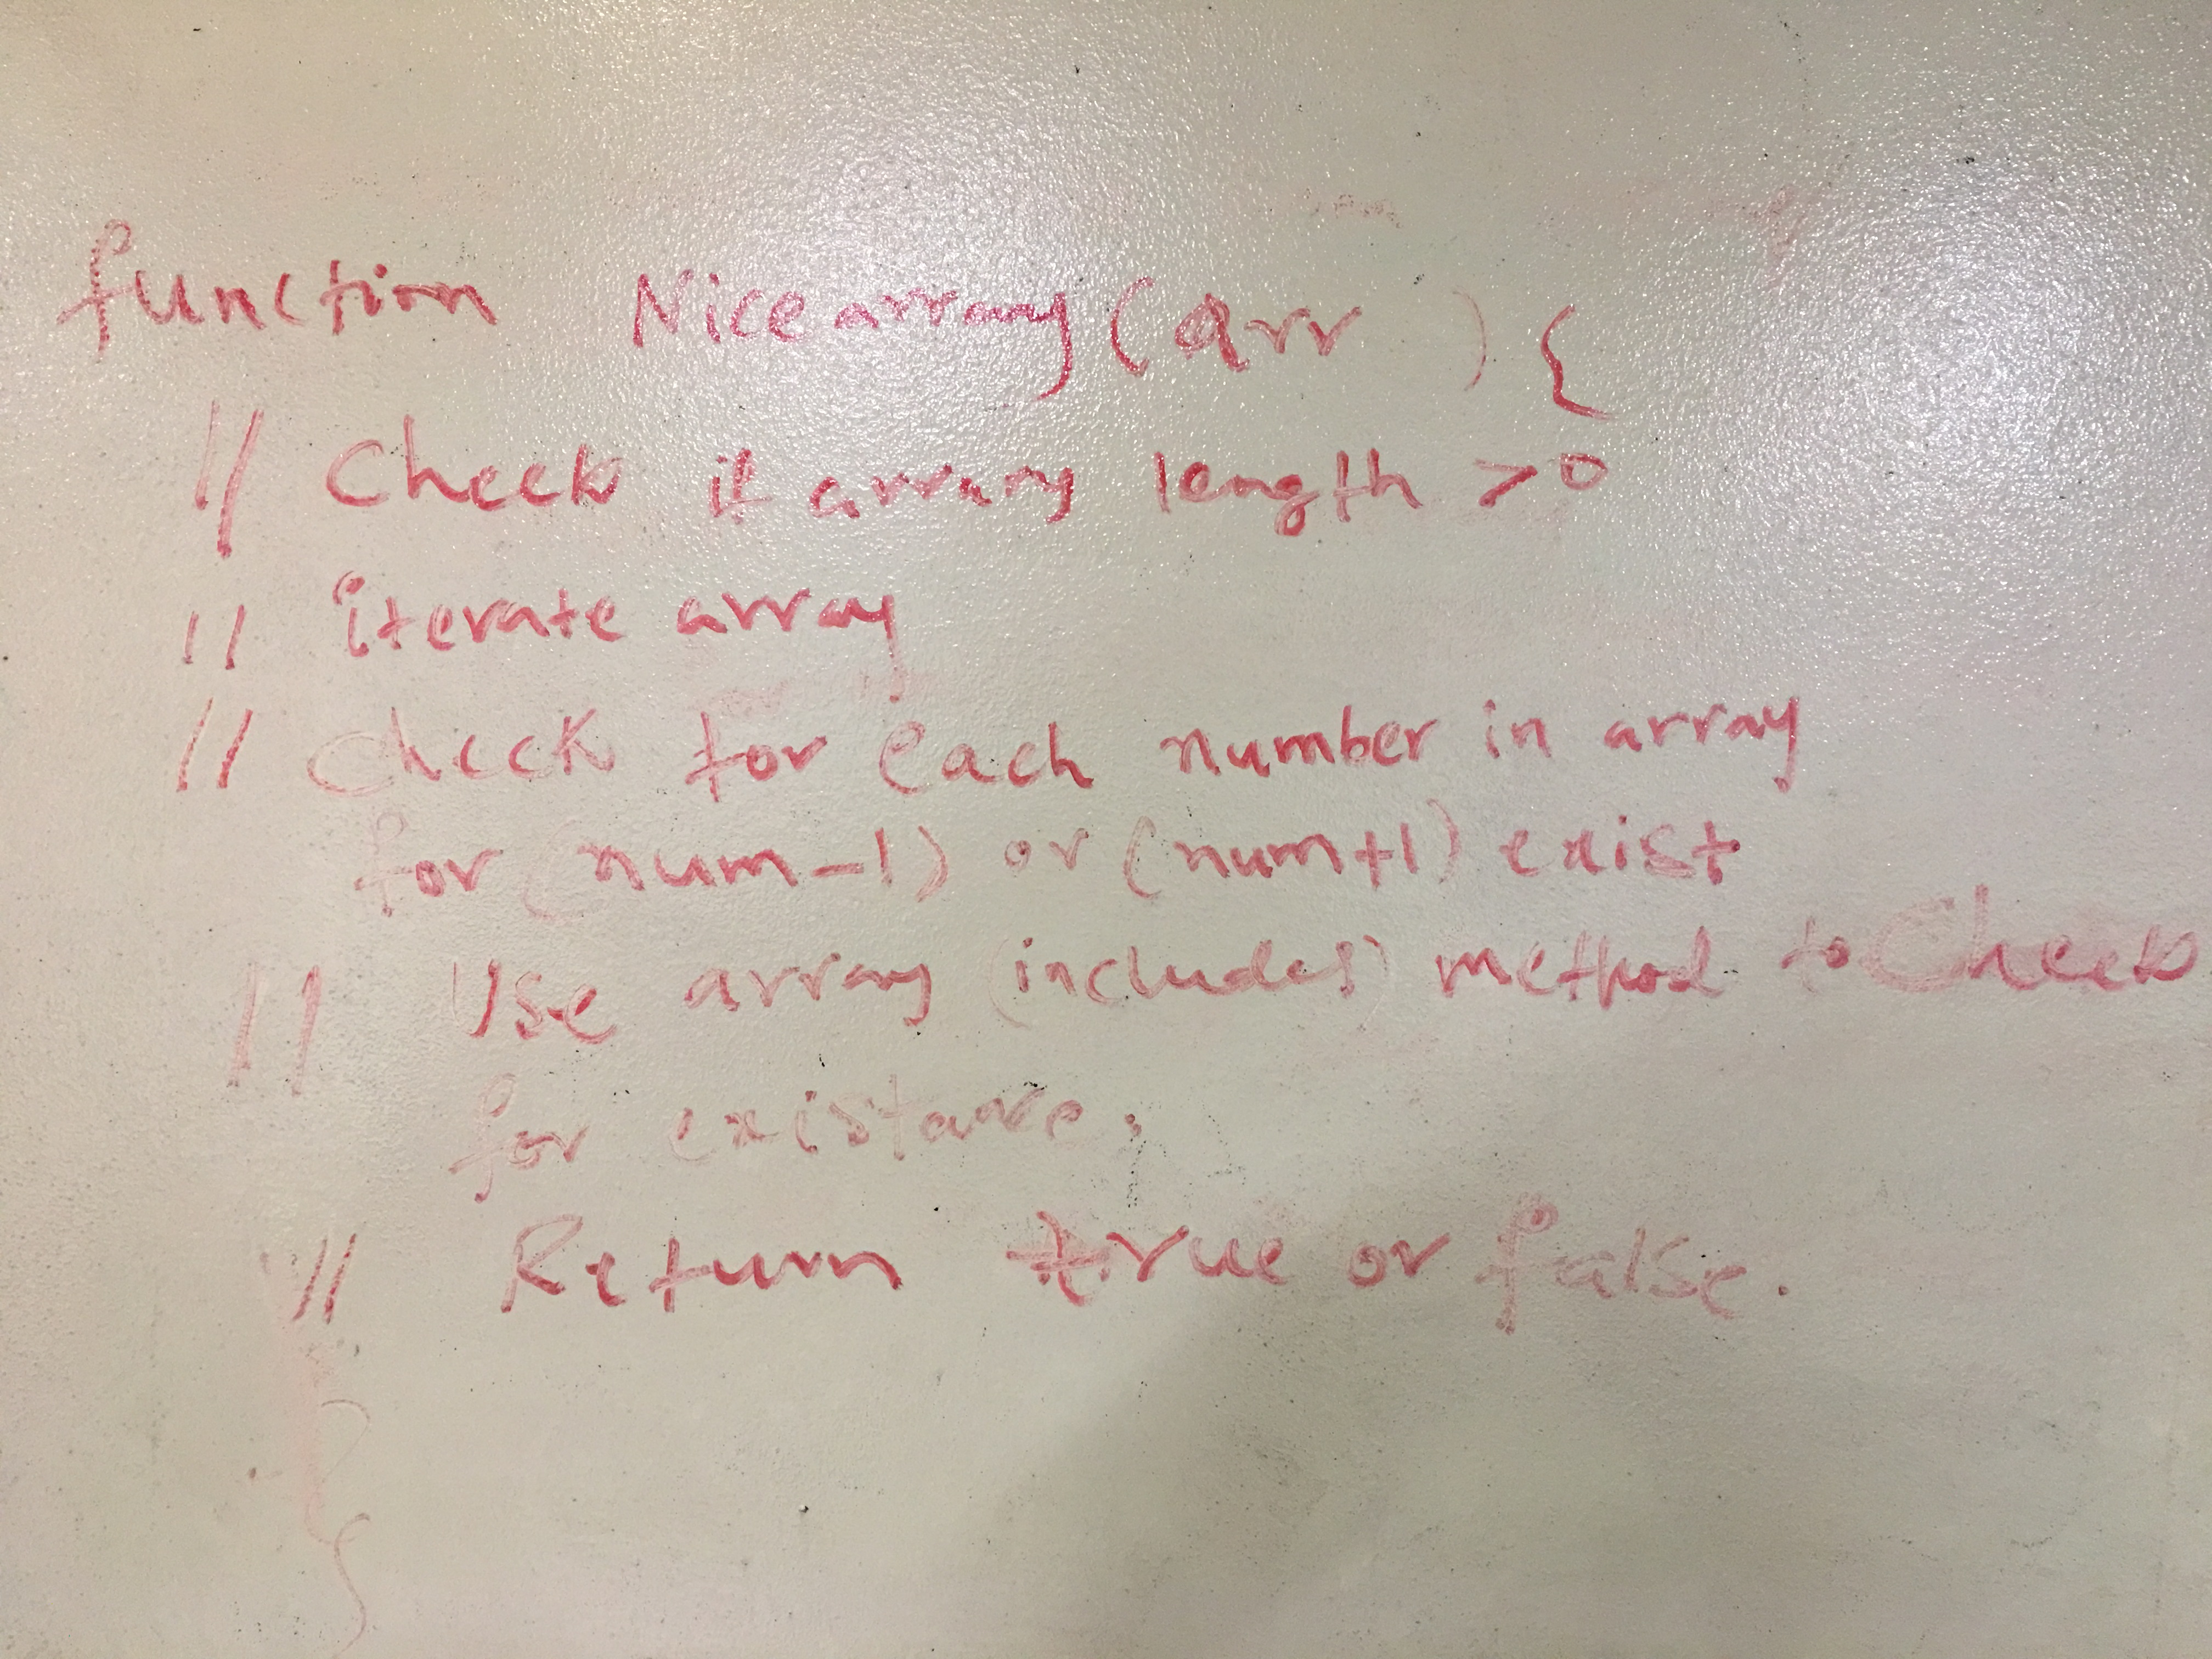 function Nicearray (arr ) {
// Check if array length >0
// iterate array
// check for each number in array
for (num-1) or (num+1) exist
// Use array (includes) method to Check
for existance.
// Return true or false.
}